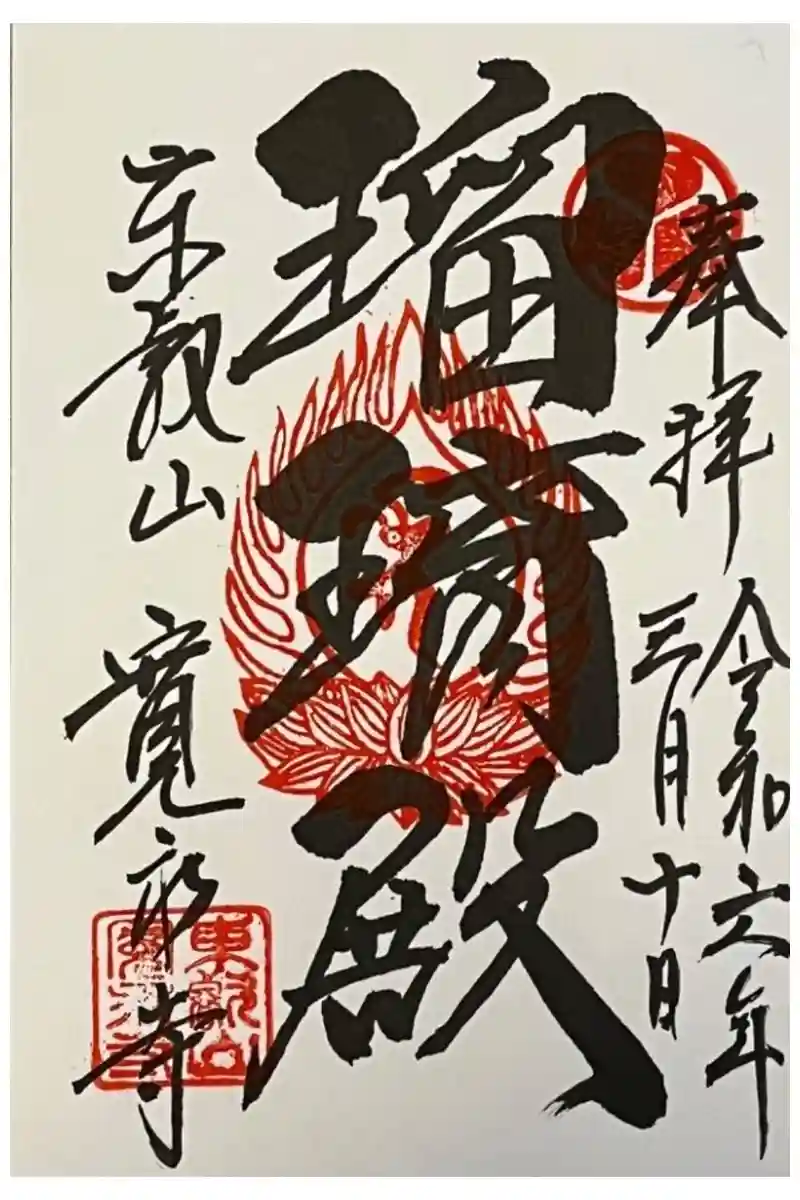 奉拝 令和六年
三月十日
瑠璃殿
東叡山 寛永寺
東叡山
寛永寺